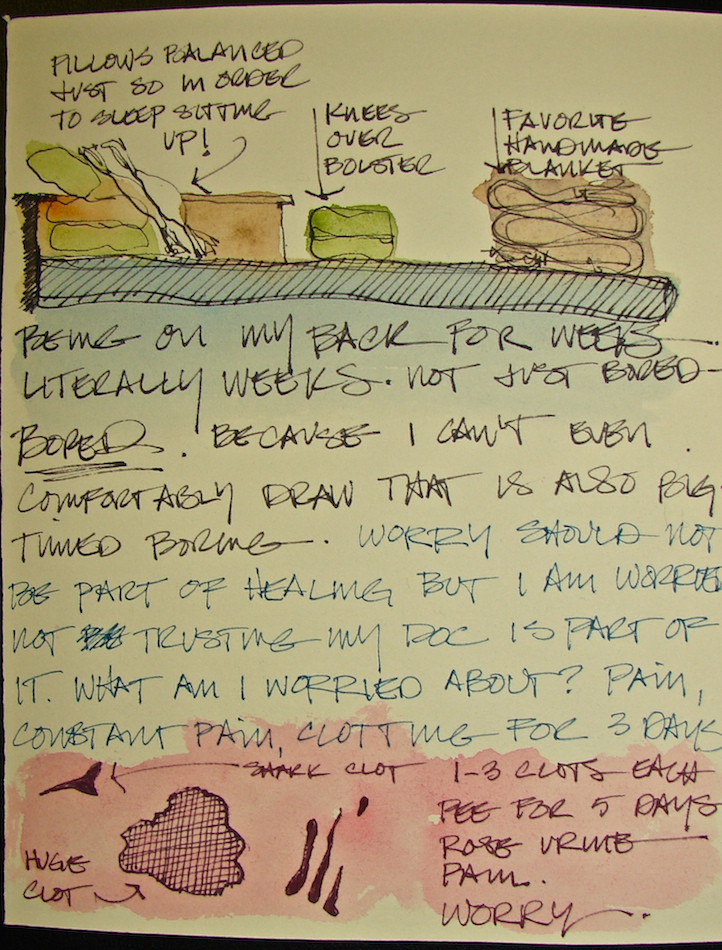 PILLOWS BALANCED
JUST SO IN ORDER
TO SLEEP SITTING
UP!
KNEES
OVER
BOLSTER
FAVORITE
HANDMADE
BLANKET
BEING ON MY BACK FOR WEEKS.
LITERALLY WEEKS. NOT JUST BORED-
BORED. BECAUSE I CAN'T EVEN
COMFORTABLY DRAW THAT IS ALSO BIG
TIMED BORING. WORRY SHOULD NOT
BE PART OF HEALING BUT I AM WORRIED
NOT TRUSTING MY DOC IS PART OF
IT. WHAT AM I WORRIED ABOUT? PAIN,
CONSTANT PAIN, CLOTTING FOR 3 DAYS
SHARK CLOT
HUGE
CLOT
1-3 CLOTS EACH
PEE FOR 5 DAYS
ROSE URINE
PAIN.
WORRY.